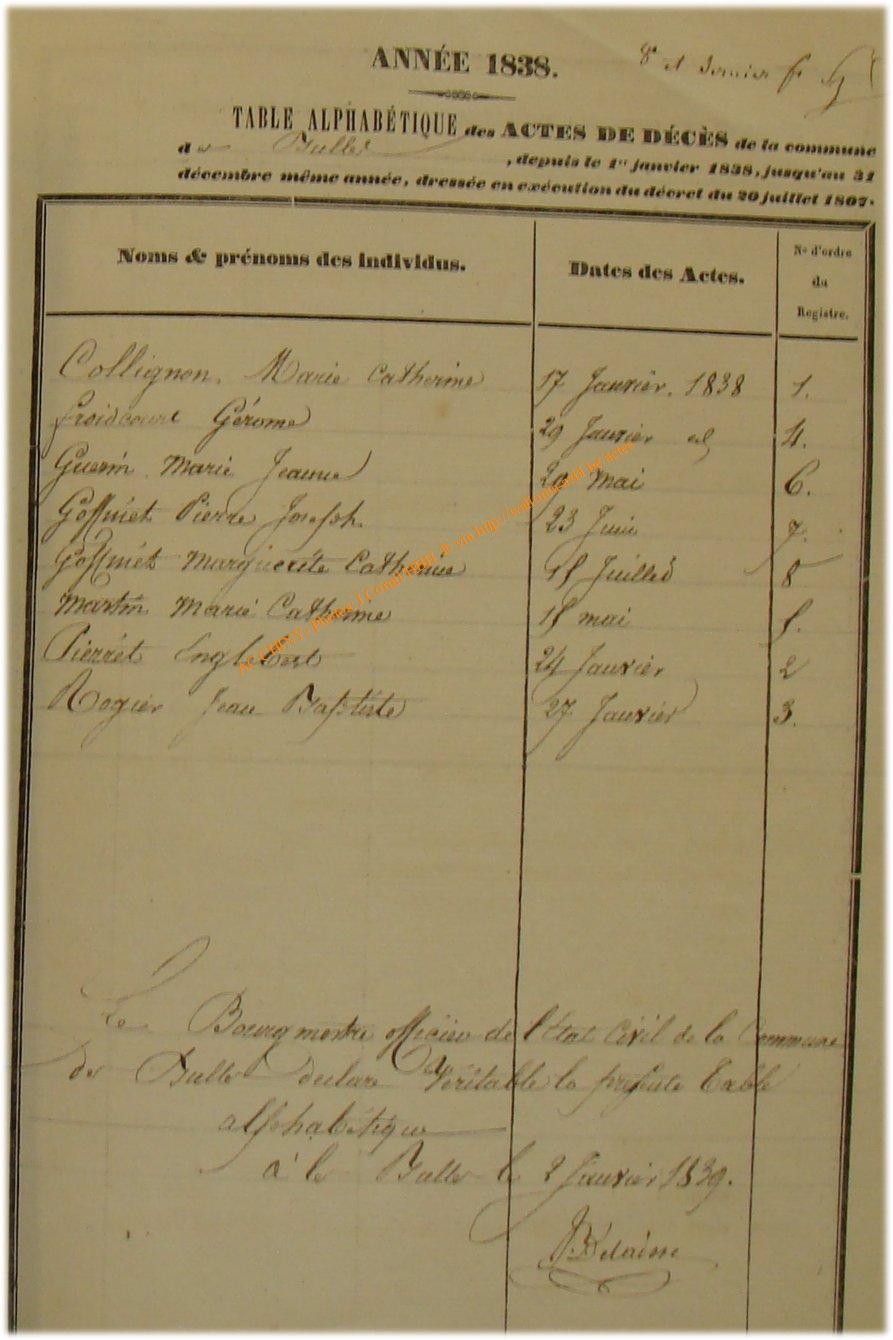 ANNÉE 1838.
8e et dernier f
TABLE ALPHABÉTIQUE des ACTES DE DÉCÈS de la commune
de Bulles, depuis le 1er janvier 1838, jusqu'au 31
décembre même année, dressée en exécution du décret du 20 juillet 1807.
Noms & prénoms des individus. Dates des Actes. No d'ordre du Registre.
Collignon. Marie Catherine 17 Janvier. 1838 1.
froidcourt Gérome 29 Janvier id 4.
Guerin Marie Jeanne 29 Mai 6.
Goffinet Pierre Joseph. 23 Juin 7.
Goffinet Marguerite Catherine 15 Juillet 8
Martin Marie Catherine 15 mai 5.
Pierret Englebert 24 Janvier 2
Rogier Jean Baptiste 27 Janvier 3.
Le Bourgmestre officier de l'État Civil de la Commune
de Bulles declare Véritable la presente table
alphabétique
Bulles le 2 Janvier 1839.